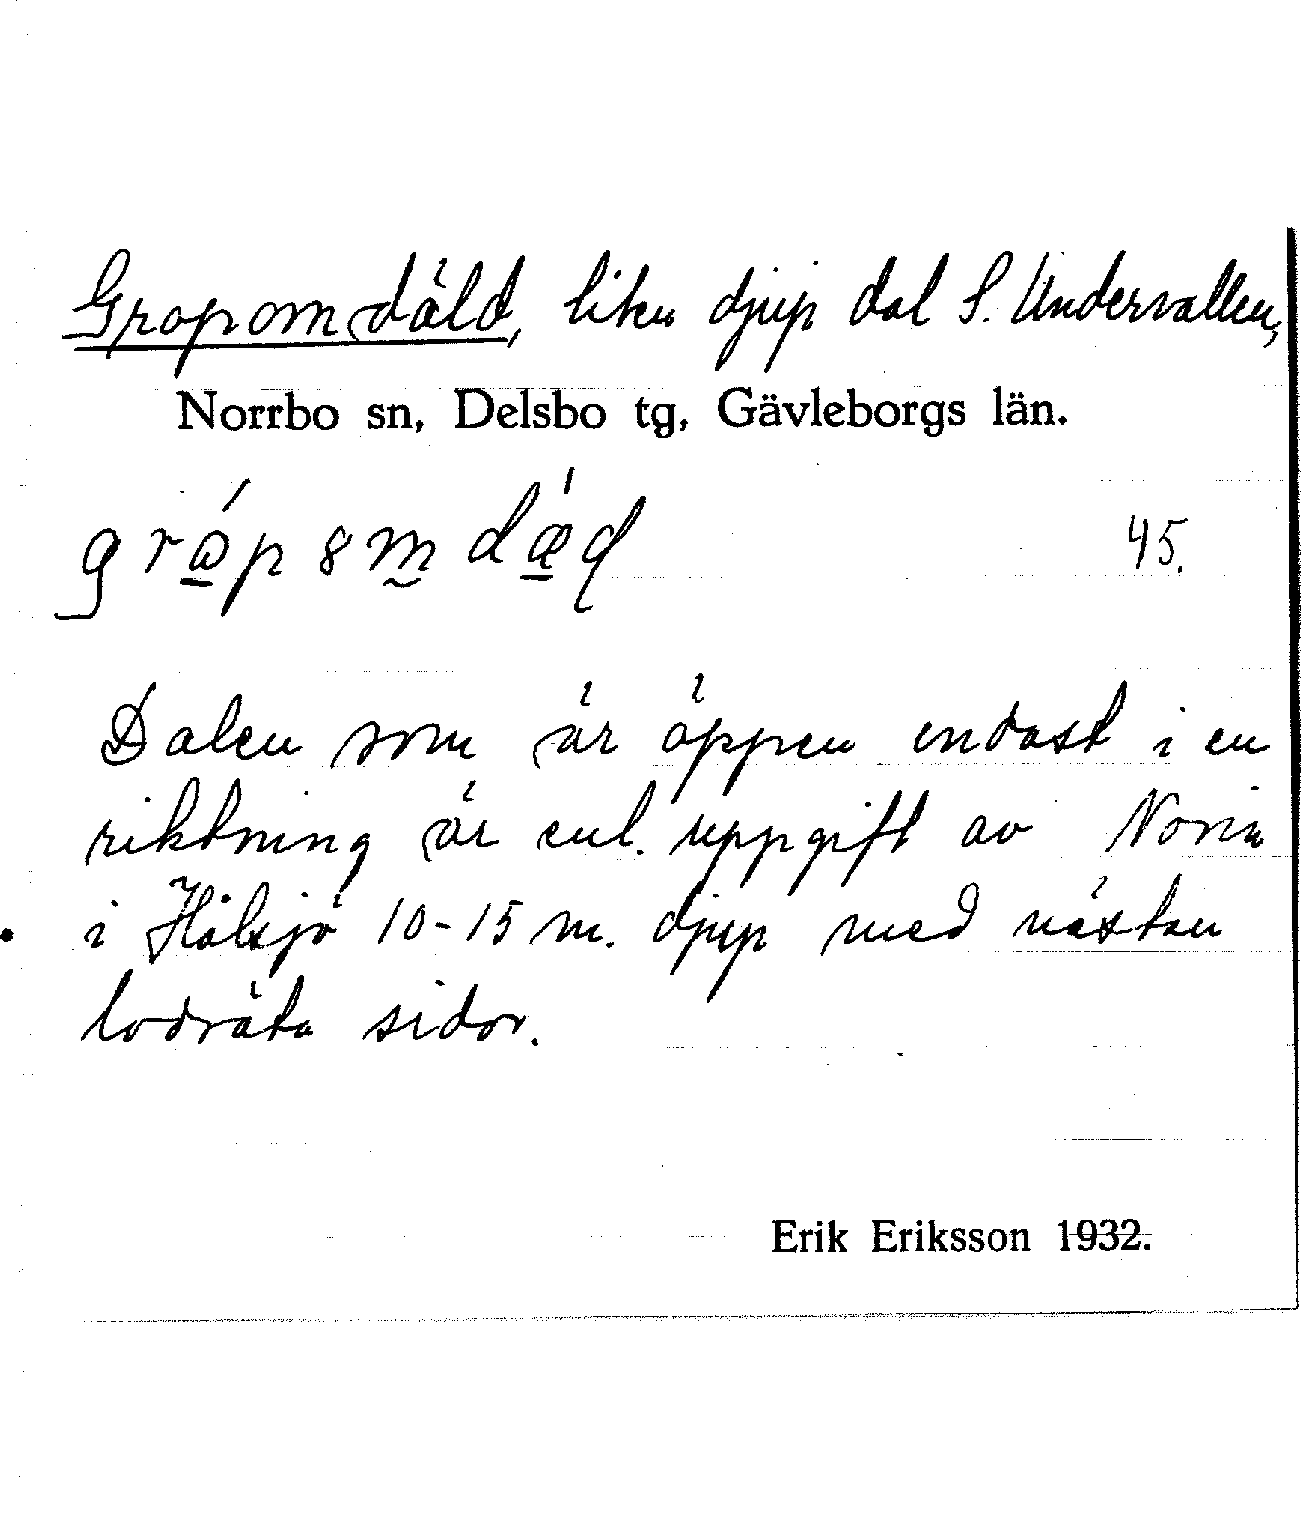 Gropomdäld, liten djup dal S. Undervallen,
Norrbo sn, Delsbo tg, Gävleborgs län.
45.
Dalen som är öppen endast i en
riktning är enl. uppgift av Norin
i Hålsjö 10-15 m. djup med nästan
lodräta sidor.
Erik Eriksson 1932.